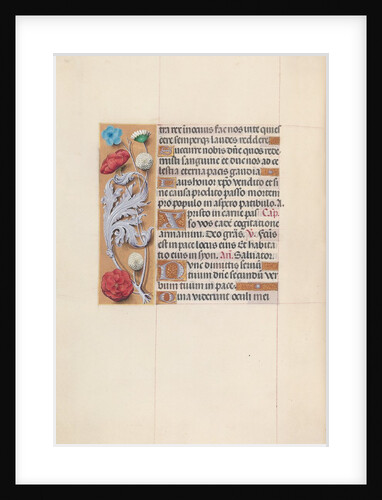 tra rte incenis fac nos inte quies
cere semperq; laudes reddere
Succurre nobis dñe quos rede
misti sanguine et duc nos ad ce
lestia eterna pacis gaudia
Laus honor xp̄o vendito et si
ne causa prodito passo mortem
pro populo in aspero patibulo. A.
Xpisto in carne pass Cap.
so vos eadē cogitatione
armamini. Deo grās. V. Factus
est in pace locus eius Et habita
tio eius in syon. An̄. Saluator.
Nunc dimittis seruū
tuum dñe secundū ver
bum tuum in pace
Quia viderunt oculi mei